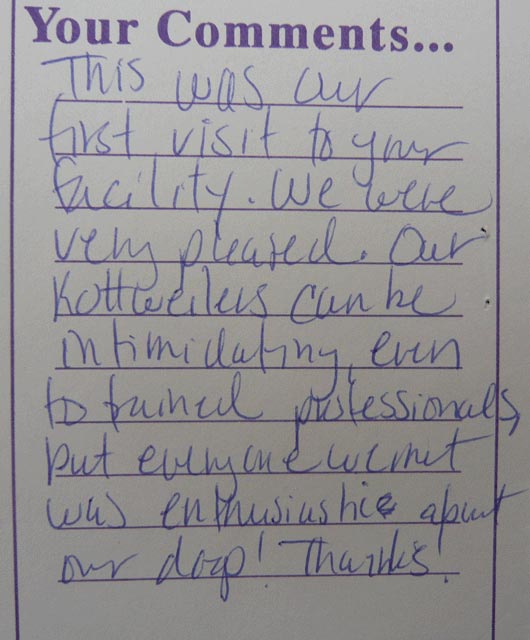 Your Comments...
This was our
first visit to your
facility. We were
very pleased. Our
Rottweilers can be
intimidating, even
to trained professionals,
but everyone we met
was enthusiastic about
our dogs! Thanks!